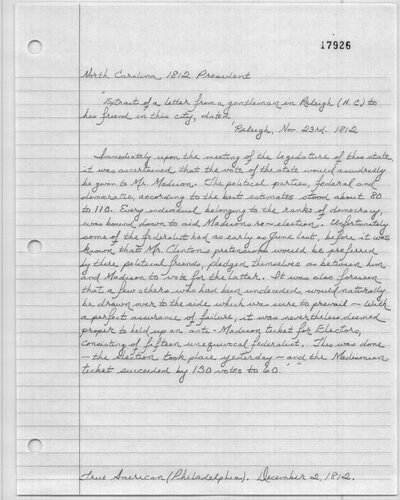 17926
North Carolina 1812 President
"Extract of a letter from a gentleman in Raleigh (N.C.) to
his friend in this city, dated
'Raleigh, Nov. 23rd. 1812
Immediately upon the meeting of the legislature of this state
it was ascertained that the vote of the state would assuredly
be given to Mr. Madison. The political parties, federal and
democratic, according to the best estimates stood about 80
to 110. Every individual belonging to the ranks of democracy,
was bound down to aid Madisons re-election. Unfortunately
some of the federalists had as early as June last, before it was
known that Mr. Clinton's pretensions would be preferred
by there political friends, pledged themselves as between him
and Madison to vote for the latter. It was also forseen
that a few others who had been undecided, would naturally
be drawn over to the side which was sure to prevail - With
a perfect assurance of failure, it was nevertheless deemed
proper to hold up an anti-Madison ticket for Electors,
consisting of fifteen unequivocal federalist. This was done
- the election took place yesterday - and the Madisonian
ticket succeeded by 130 votes to 60.' "
True American (Philadelphia). December 2, 1812.